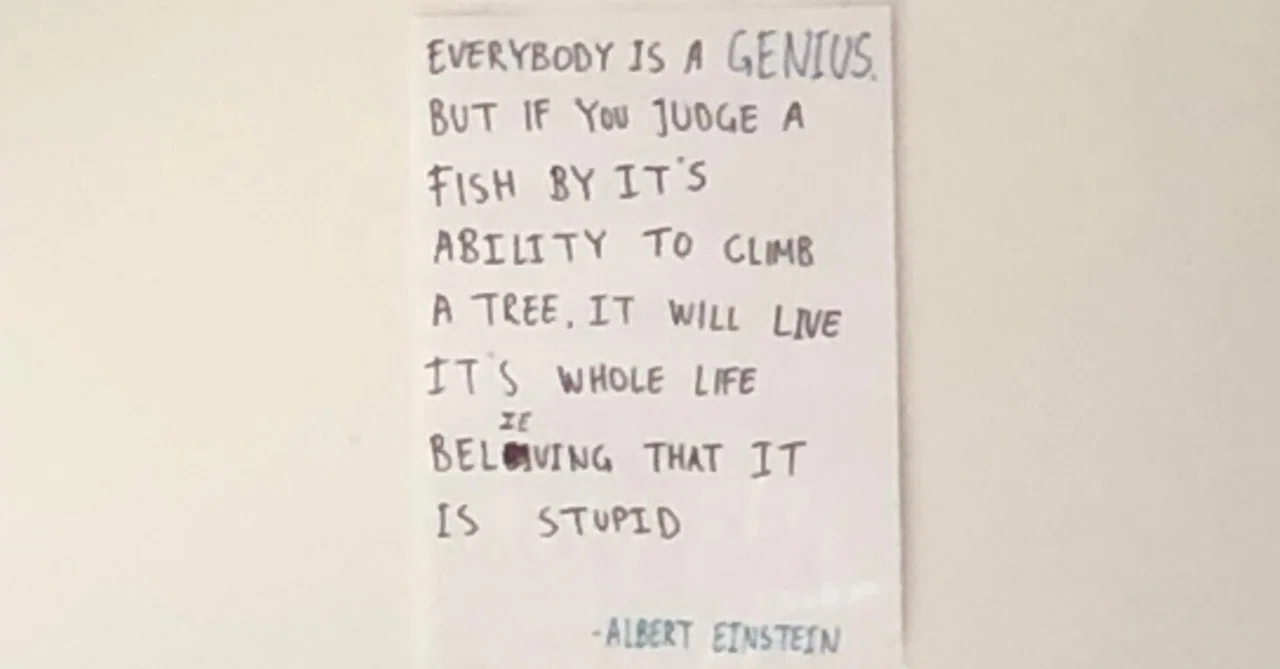 EVERYBODY IS A GENIUS.
BUT IF YOU JUDGE A
FISH BY IT'S
ABILITY TO CLIMB
A TREE, IT WILL LIVE
IT'S WHOLE LIFE
BELIEVING THAT IT
IS STUPID
-ALBERT EINSTEIN